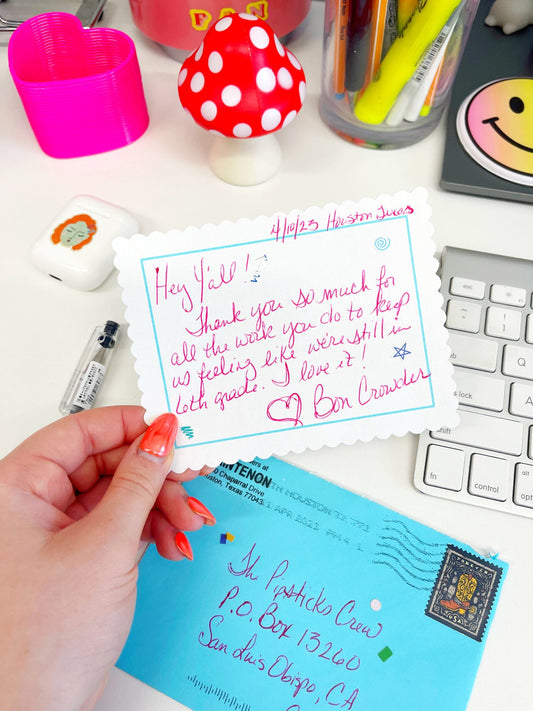 PAN
4/10/23 Houston Texas
Hey Y'all!
Thank you so much for
all the work you do to keep
us feeling like we're still in
6th grade. I love it!
Bon Crowder
esc
Q
A
lock
shift
fn
control
option
INTENON
Chaparral Drive
Houston, Texas 77043
NORTH HOUSTON TX 773
11 APR 2023 PM 4 L
FOREVER
USA
The Pipsticks Crew
P.O. Box 13260
San Luis Obispo, CA